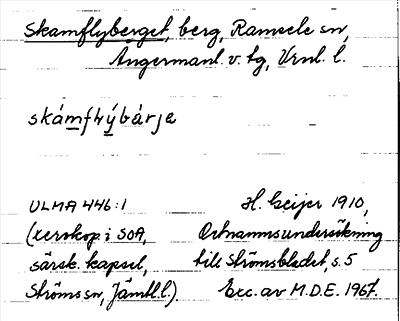 Skamflyberget, berg, Ramsele sn,
Ångermanl. v. tg, Vrnl. l.
skámflýbárja
ULMA 446:1 H. Geijer 1910,
(xerokop. i SOA, Ortnamnsundersökning
särsk. kapsel, till Strömsbladet, s. 5
Ströms sn, Jämtl. l.) Exc. av M.D.E. 1967.